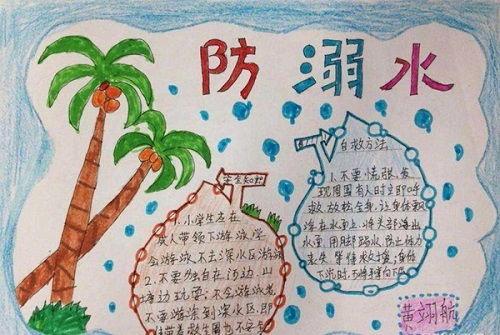 防溺水
安全知识
1.小学生应在
成人带领下游泳,学
会游泳,不去深水区游泳
2.不要独自在河边、山
塘边玩耍;不会游泳者,
不要游泳到深水区,即
使带着救生圈也不安全
自救方法
1.不要慌张,发
现周围有人时立即呼
救,放松全身,让身体飘
浮在水面上,将头部浮出
水面,用脚踢水,防止体力
丧失,等待救援;身体
下沉时,可将手掌向下
黄翊航